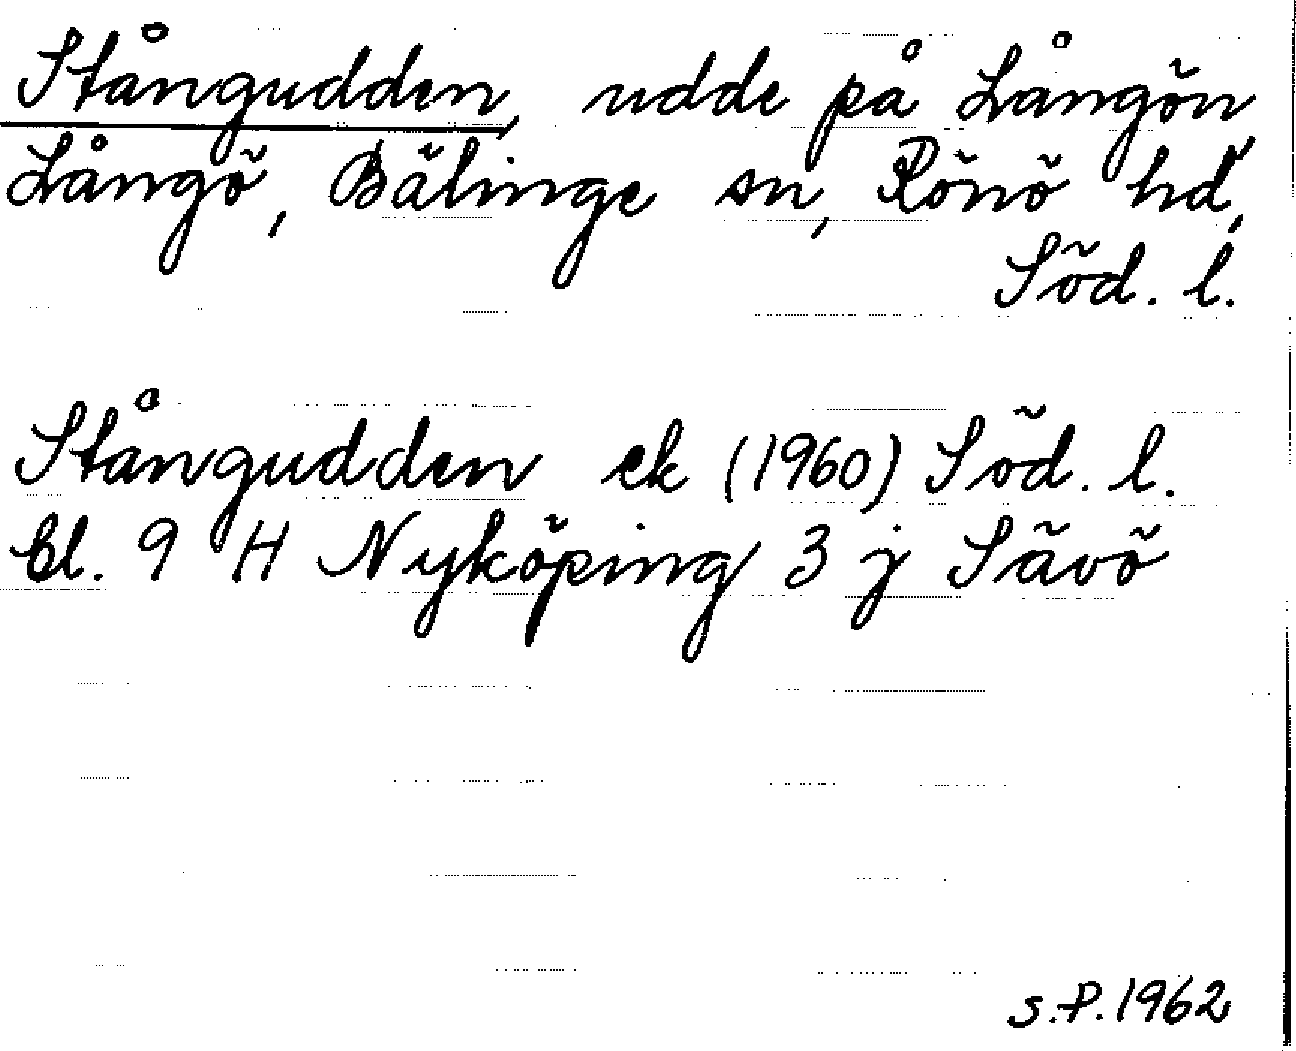 Stångudden, udde på Långön,
Långö, Bälinge sn, Rönö hd,
Söd. l.
Stångudden ek (1960) Söd. l.
bl. 9 H Nyköping 3 j Sävö
S.P. 1962